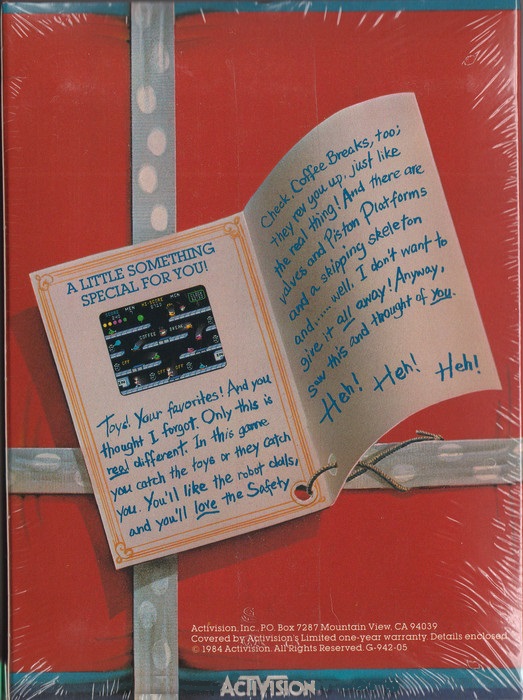 A LITTLE SOMETHING
SPECIAL FOR YOU!
Toys! Your favorites! And you
thought I forgot. Only this is
real different. In this game
you catch the toys or they catch
you. You'll like the robot dolls,
and you'll love the Safety
Check Coffee Breaks, too;
they rev you up, just like
the real thing! And there are
valves and Piston Platforms
and a skipping skeleton
and..... well, I don't want to
give it all away! Anyway,
saw this and thought of you.
Heh! Heh! Heh!
Activision, Inc., P.O. Box 7287 Mountain View, CA 94039
Covered by Activision's Limited one-year warranty. Details enclosed.
© 1984 Activision. All Rights Reserved. G-942-05
ACTIVISION